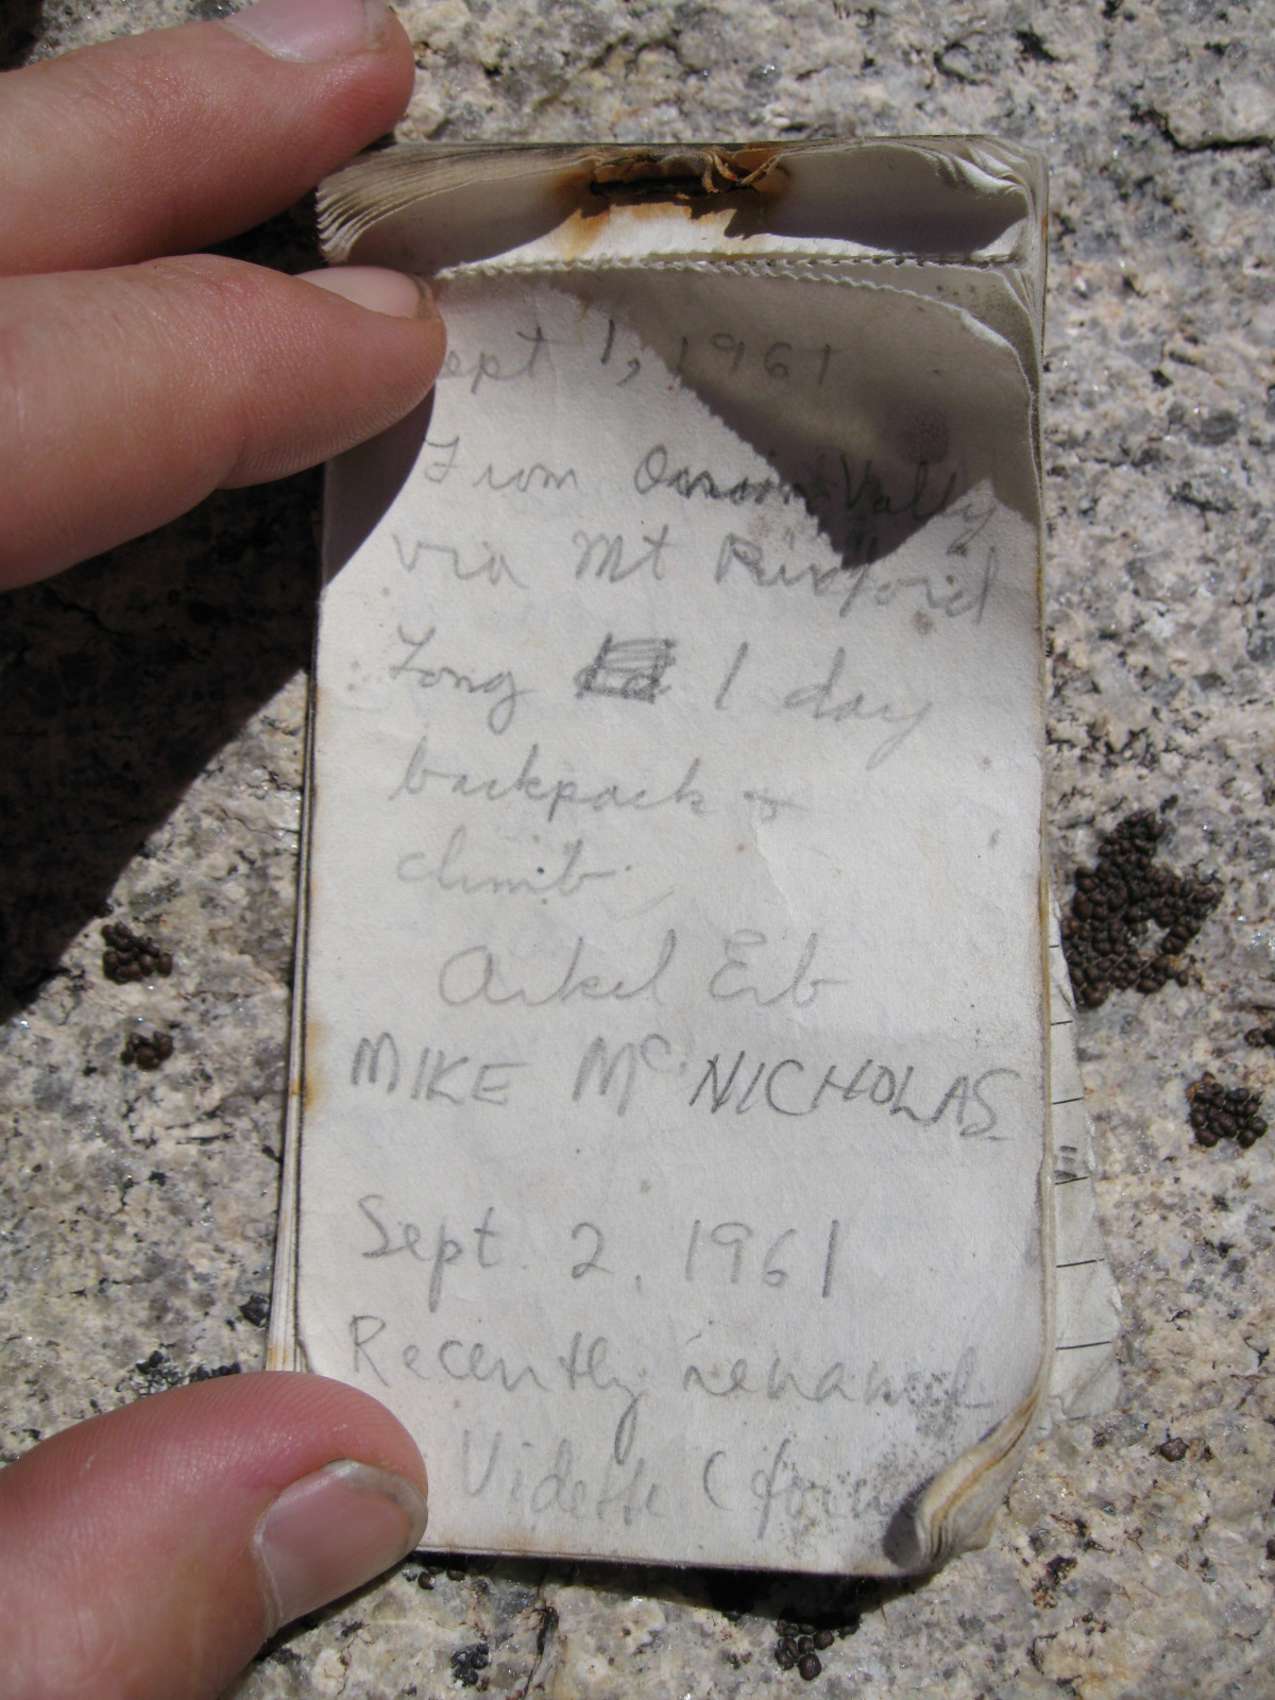 ept 1, 1961
From Onion Vally
via Mt Rixford
Long 1 day
backpack &
climb.
Arkel Erb
MIKE McNICHOLAS
Sept. 2, 1961
Recently renamed
Vidette (form